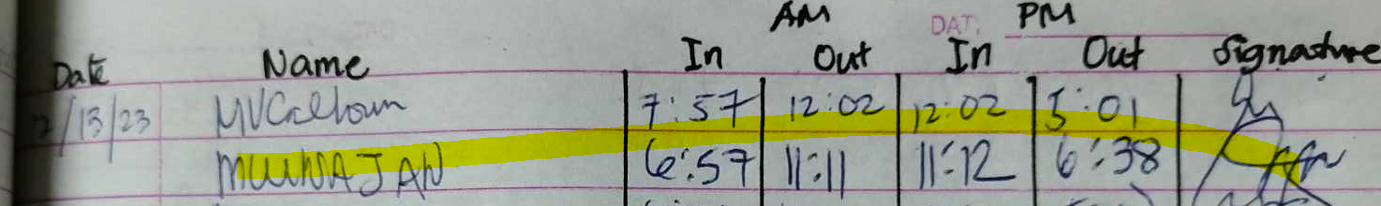 AM DAT. PM
Date Name In Out In Out Signature
2/13/23 MVCalhoun 7:57 12:02 12:02 5:01
6:57 11:11 11:12 6:38